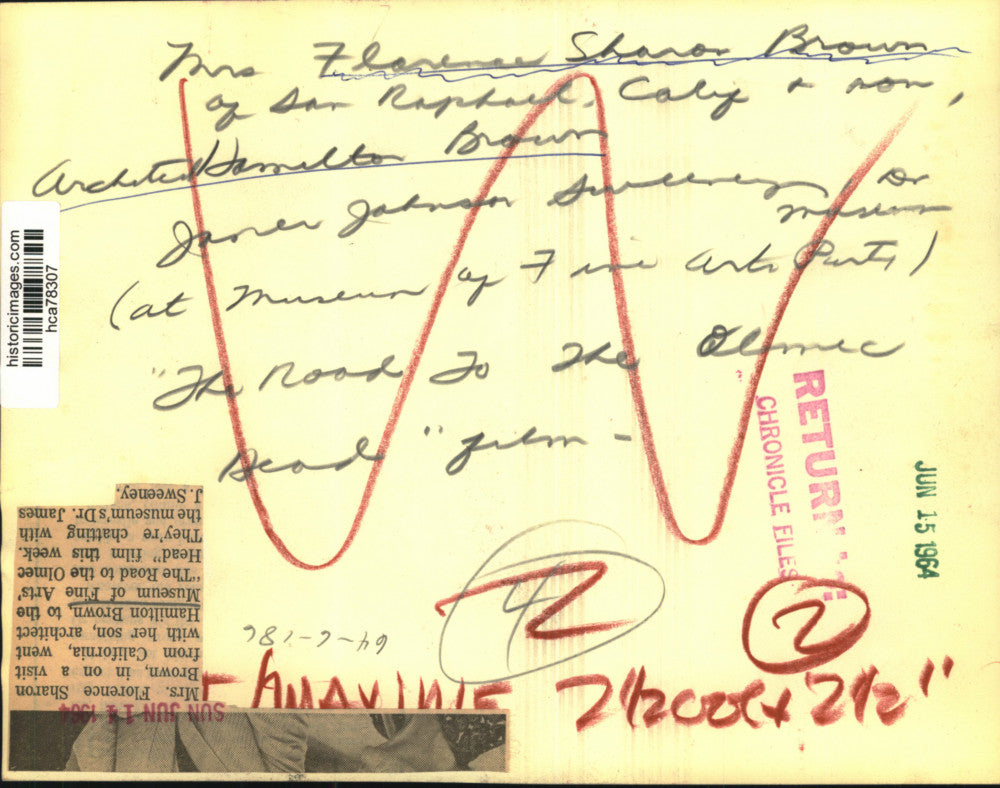 Mrs Florence Sharon Brown
of San Raphael, Calif & son,
Architect Hamilton Brown
James Johnson Sweeney, Dr
museum
(at Museum of Fine Arts Party)
"The Road To The Olmec
Head" film -
historicimages.com
hca78307
RETURN
CHRONICLE FILES
JUN 15 1964
Mrs. Florence Sharon
Brown, in on a visit
from California, went
with her son, architect
Hamilton Brown, to the
Museum of Fine Arts'
"The Road to the Olmec
Head" film this week.
They're chatting with
the museum's Dr. James
J. Sweeney.
SUN JUN 14 1964
64-6-186
4
2
2
2½ col x 2½"